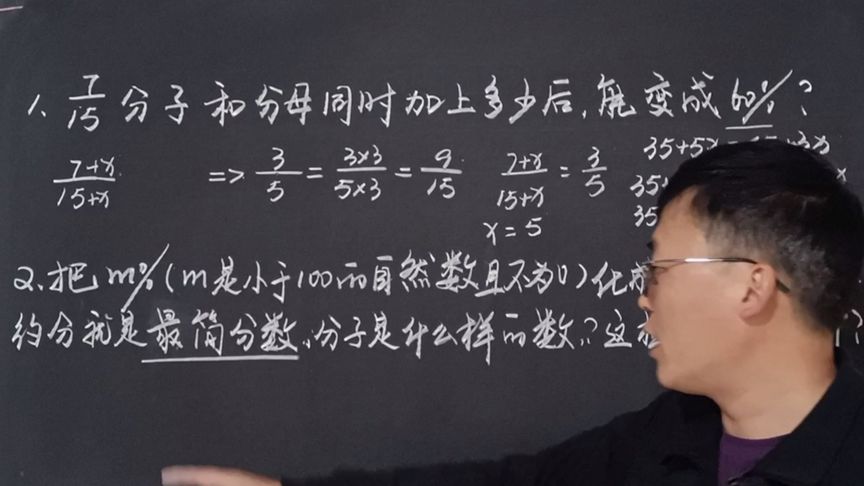 1. 7/15 分子和分母同时加上多少后,能变成 60%?
7+x/15+x => 3/5 = 3×3/5×3 = 9/15 7+x/15+x = 3/5 35+5x 3x
35
x = 5 35
2. 把 m%(m是小于100的自然数且不为0)化成
约分就是最简分数,分子是什么样的数?这 ?